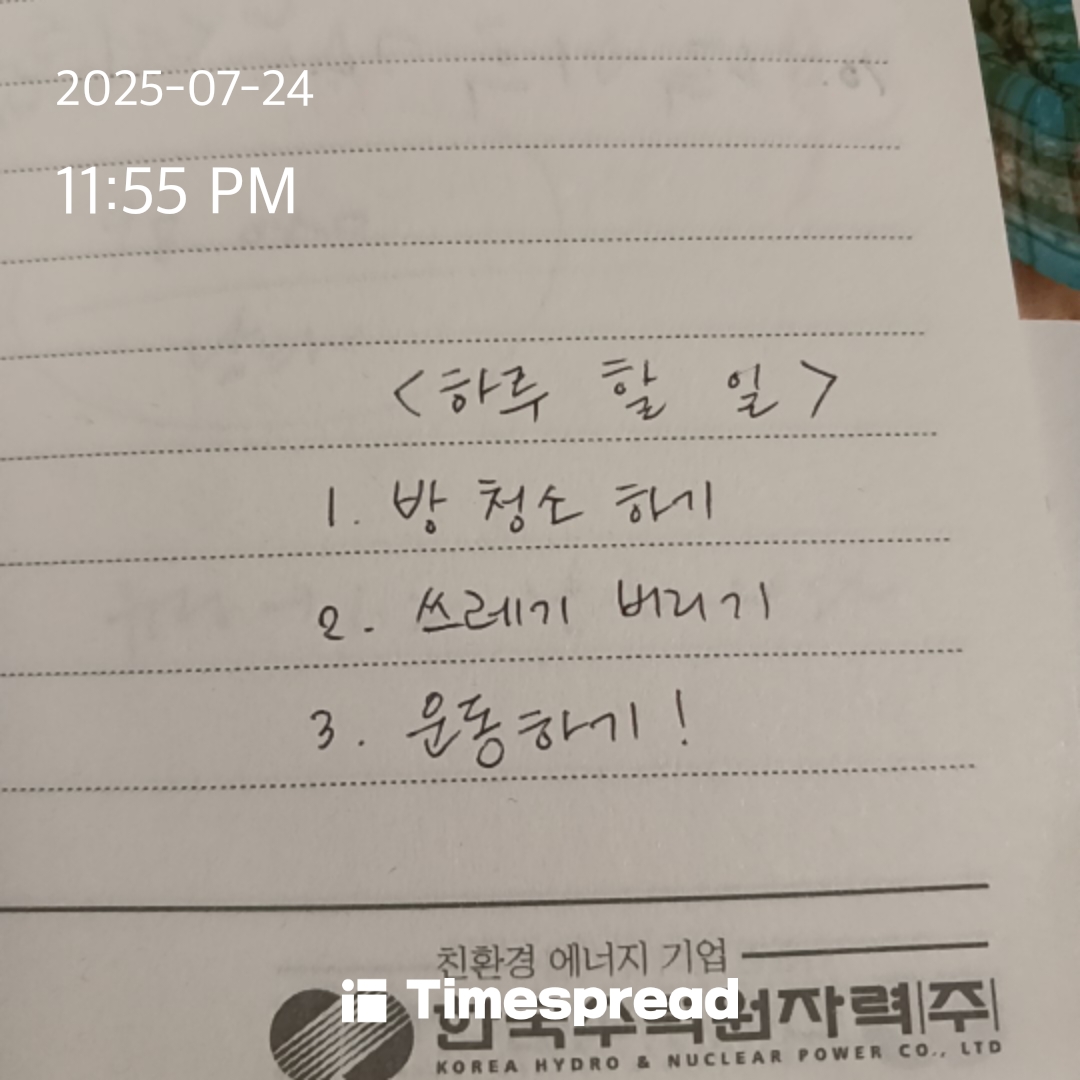 2025-07-24
11:55 PM
<하루 할 일>
1. 방 청소 하기
2. 쓰레기 버리기
3. 운동하기!
친환경 에너지 기업
Timespread
한국수력원자력(주)
KOREA HYDRO & NUCLEAR POWER CO., LTD